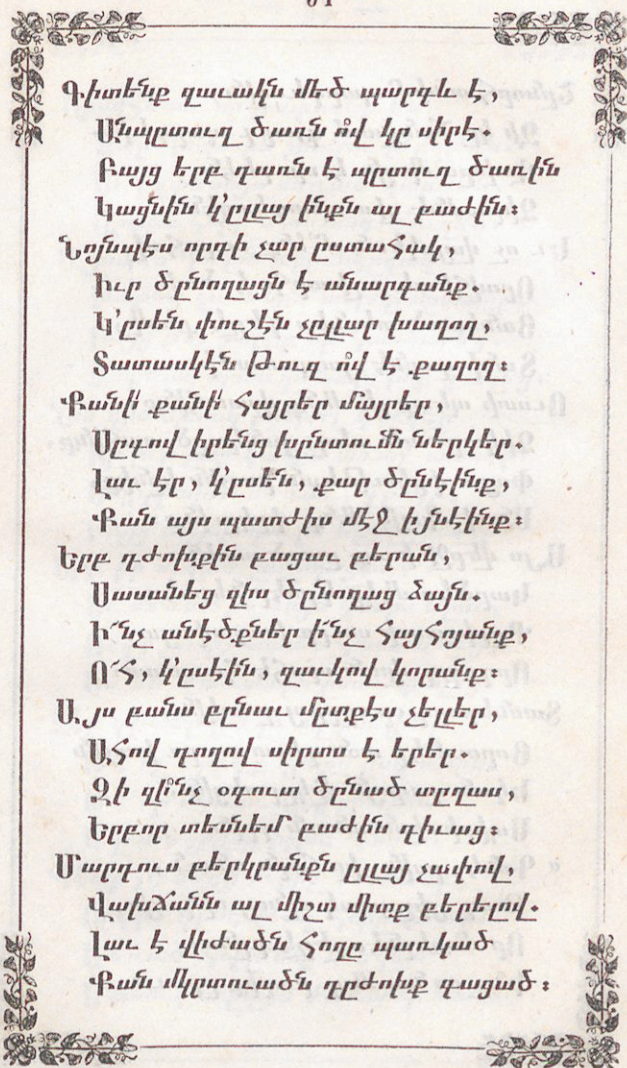 Գիտենք զաւակն մեծ պարգև է,
Անպըտուղ ծառն ո՞վ կը սիրէ.
Բայց երբ դառն է պըտուղ ծառին
Կացնին կ'ըլլայ ինքն ալ բաժին։
Նոյնպէս որդի չար ըստահակ,
Իւր ծընողացն է անարգանք.
Կ'ըսեն փուշէն չըլլար խաղող,
Տատասկէն թուզ ո՞վ է քաղող։
Քանի՜ քանի՜ հայրեր մայրեր,
Սըգով իրենց խընտումն ներկեր.
Լաւ էր, կ'ըսեն, քար ծընէինք,
Քան այս պատժիս մէջ իյնէինք։
Երբ դժոխքին բացաւ բերան,
Սասանեց զիս ծընողաց ձայն.
Ի՜նչ անէծքներ ի՜նչ հայհոյանք,
Ո՜հ, կ'ըսէին, զաւկով կորանք։
Այս բանս բընաւ մըտքէս չելլեր,
Ահով դողով սիրտս է երեր.
Զի զի՞նչ օգուտ ծընած տըղաս,
Երբոր տեսնեմ բաժին դիւաց։
Մարդուս բերկրանքն ըլլայ չափով,
Վախճանն ալ միշտ միտք բերելով.
Լաւ է վիժածն հողը պառկած
Քան մկրտուածն դըժոխք գացած։